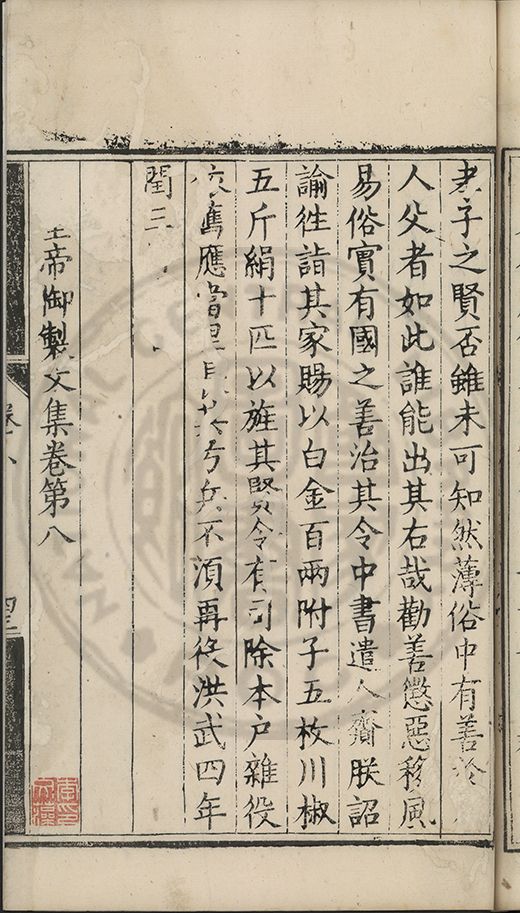 子之賢否雖未可知然薄俗中有善於
人父者如此誰能出其右哉勸善懲惡移風
易俗實有國之善治其令中書遣人齎朕詔
諭往詣其家賜以白金百兩附子五枚川椒
五斤絹十匹以旌其賢令有司除本户雜役
舊應當弓兵不須再役洪武四年
閏三
帝御製文集卷第八